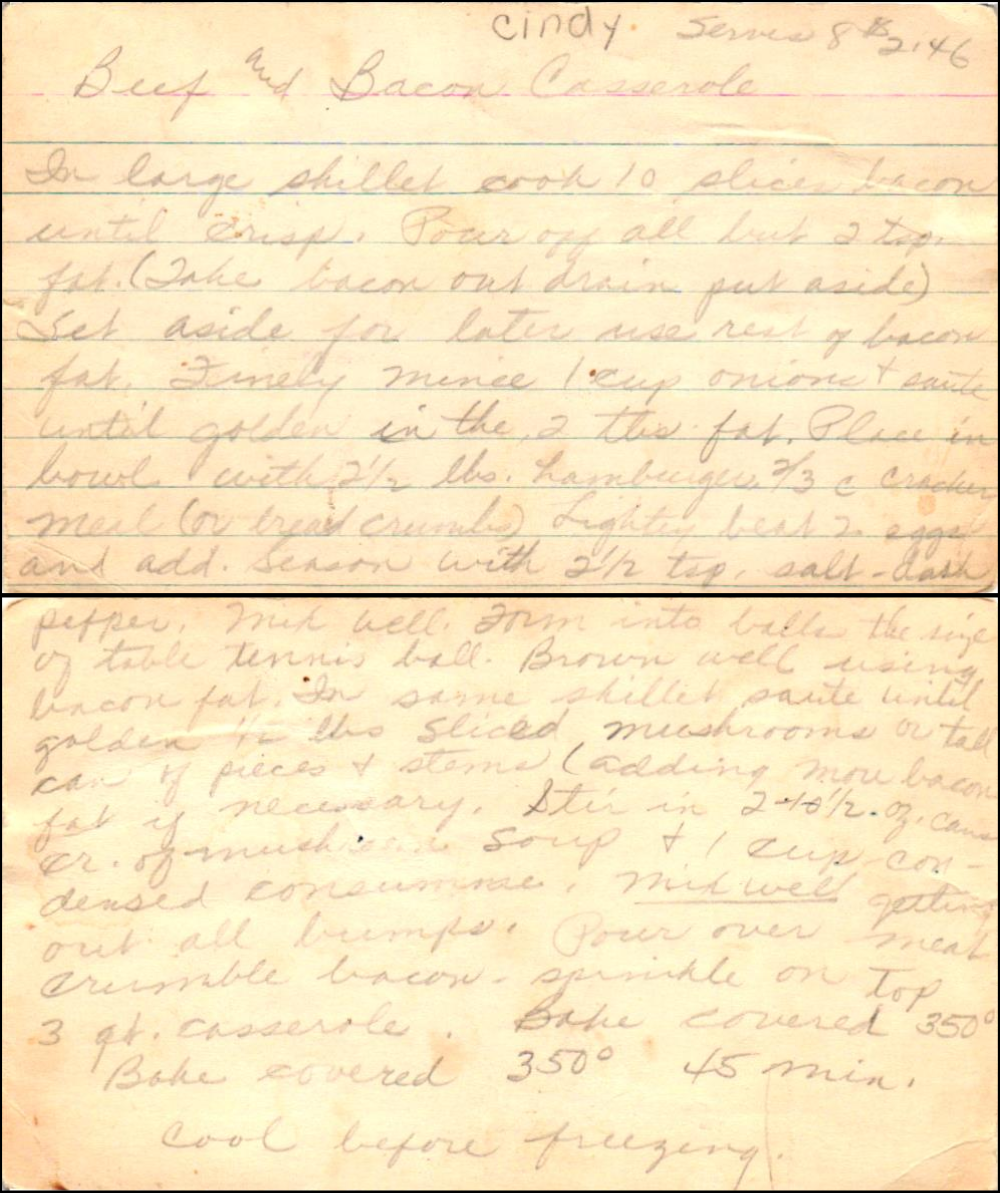 cindy. Serves 8 $2.46
Beef and Bacon Casserole
In large skillet cook 10 slices bacon
until crisp. Pour off all but 2 tsp.
fat. (Take bacon out drain put aside)
Set aside for later use rest of bacon
fat. Finely mince 1 cup onions + saute
until golden in the 2 tbs. fat. Place in
bowl with 2 1/2 lbs. hamburger, 2/3 c cracker
meal (or bread crumbs) Lightly beat 2 eggs
and add. Season with 2 1/2 tsp. salt - dash
pepper. Mix well. Form into balls the size
of table tennis ball. Brown well using
bacon fat. In same skillet saute until
golden lbs sliced mushrooms or tall
can of pieces + stems (adding more bacon
fat if necessary. Stir in 2-10 1/2-oz. cans
cr. of mushroom soup + 1 cup con-
densed consumme. Mix well getting
out all bumps. Pour over meat
crumble bacon - sprinkle on top
3 qt. casserole. Bake covered 350°
Bake covered 350° 45 min.
cool before freezing.